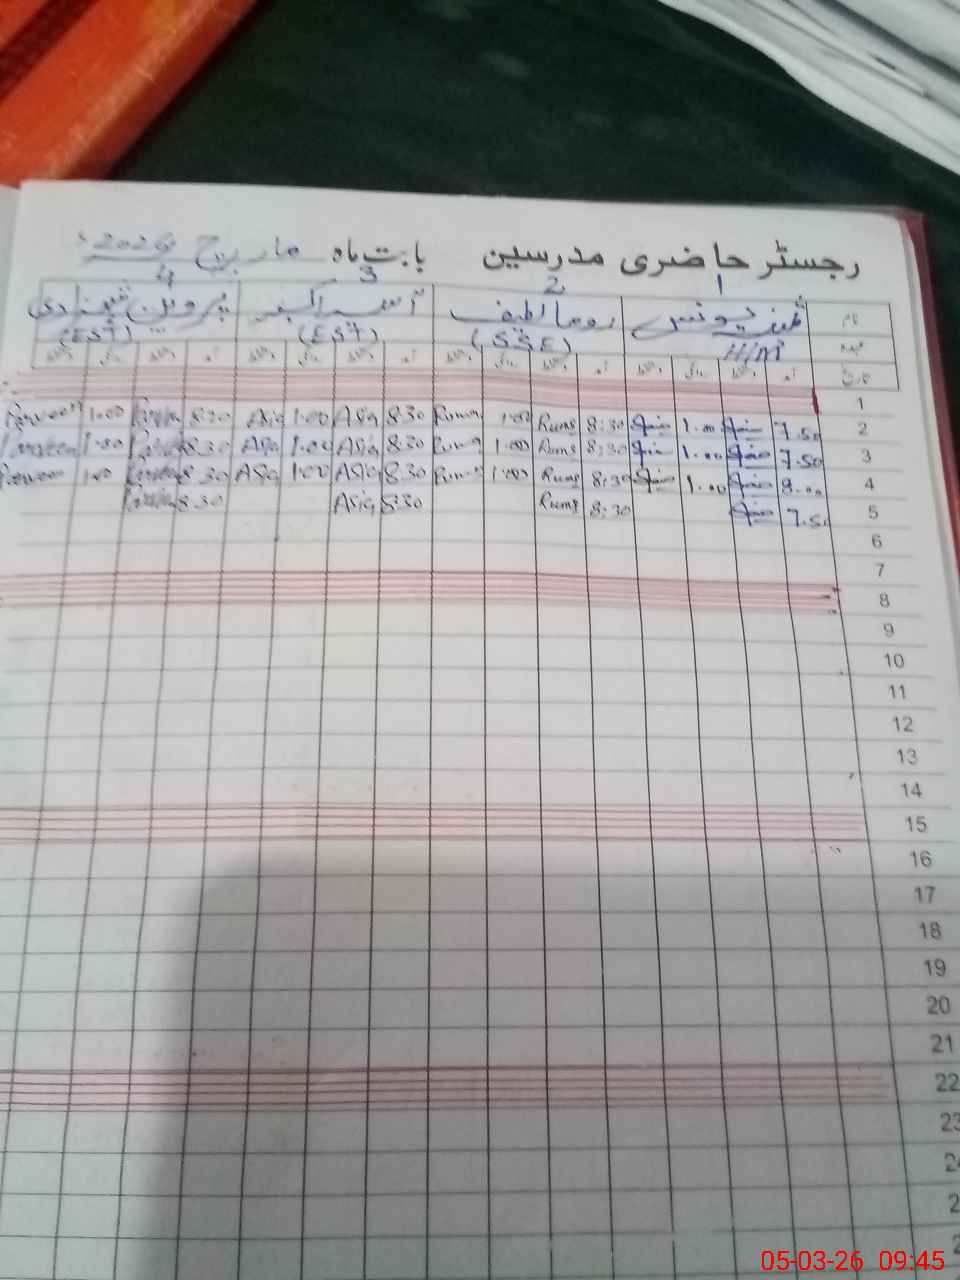 رجسٹر حاضری مدرسین بابت ماہ مارچ 2026ء
1 2 3 4
نام یونس روما لطیف آسیہ اکبر پروین شہزادی
عہدہ H/M (SSE) (EST) (EST)
تاریخ آمد دستخط روانگی دستخط آمد دستخط روانگی دستخط آمد دستخط روانگی دستخط آمد دستخط روانگی دستخط
1
2 7.50 1.00 8:30 Ruma 1.00 Ruma 8.30 Asia 1.00 Asia 8.30 Parveen 1.00 Parveen
3 7.50 1.00 8:30 Ruma 1.00 Ruma 8.30 Asia 1.00 Asia 8.30 Parveen 1.00 Parveen
4 8.00 1.00 8:30 Ruma 1.00 Ruma 8.30 Asia 1.00 Asia 8.30 Parveen 1.00 Parveen
5 7.50 8:30 Ruma 8.30 Asia 8.30 Parveen
6
7
8
9
10
11
12
13
14
15
16
17
18
19
20
21
22
23
24
05-03-26 09:45